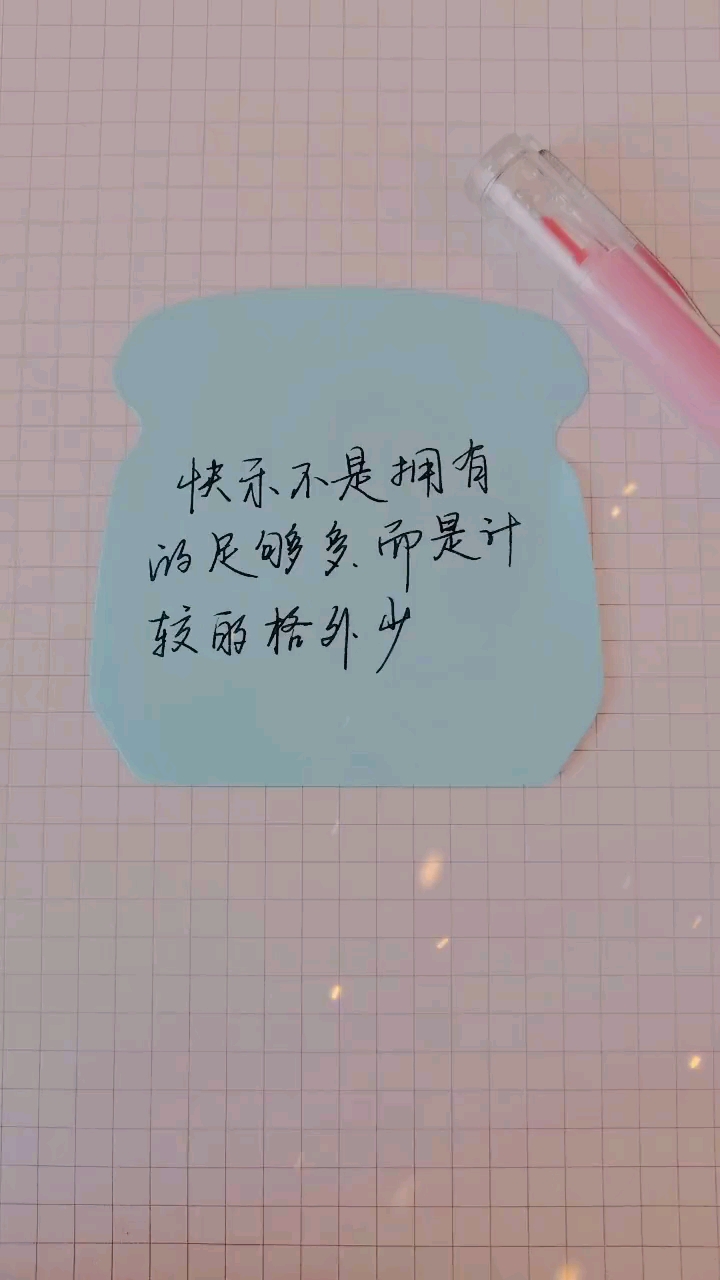 快乐不是拥有
的足够多.而是计
较的格外少